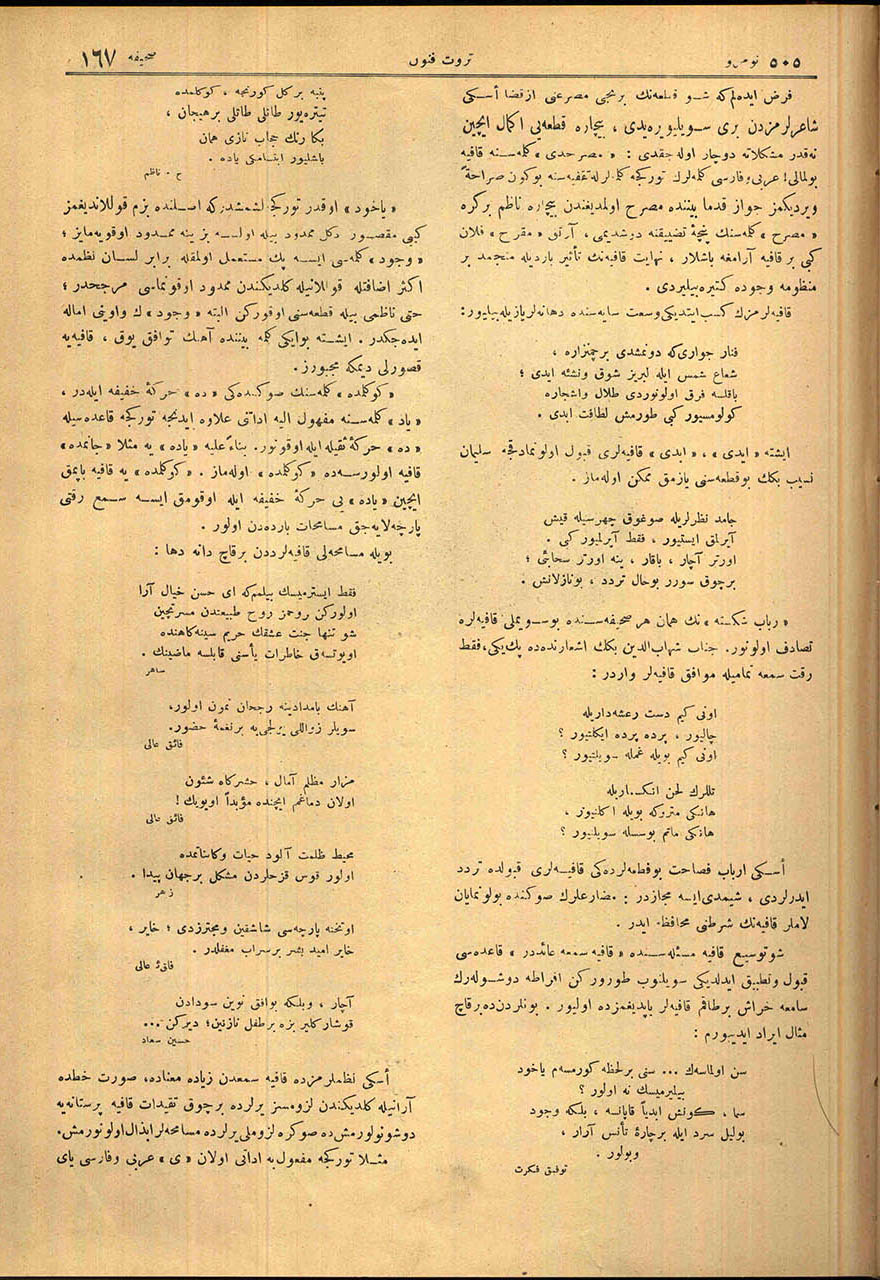 نومرو ٥٠٥
ثروت فنون
صحيفه ١٦٧
فرض ايده‌لم‌كه شو قطعه‌نك برنجى مصرعنى از قضا أسكى
شاعرلرمزدن برى سويليويره‌يدى ، بيچاره قطعه‌يى اكمال ايچين
نه‌قدر مشكلاته دوچار اوله‌جقدى : « مصرحدى » كله‌سنه قافيه
بولمالى! عربى وفارسى كله‌لرك توركجه كله‌لرله تقفيه‌سنه بوكون صراحةً
ويرديكمز جواز قدما بيننده مصرح اولمديغندن بيچاره ناظم بركره
« مصرح » كله‌سنك پنجهٔ تضييقنه دوشديمى ، آرتق « مقرح » فلان
كبى بر قافيه آرامغه باشلار ، نهايت قافيه‌نك تأثير بارديله منجمد بر
منظومه وجوده كتيره‌بيليردى .
قافيه‌لرمزك كسب ايتديكى وسعت سايه‌سنده دهانه‌لر يازيله‌بيليور:
فنار جوارى‌كه دونمشدى برچمنزاره ،
شعاع شمس ايله لبريز شوق ونشئه ايدى ؛
باقلسه فرق اولونوردى طلال واشجاره
كولومسيور كبى طورمش لطافت ابدى .
ايشته « ايدى » ، « ابدى » قافيه‌لرى قبول اولونمادقجه سليمان
نسيب بكك بوقطعه‌سنى يازمق ممكن اوله‌ماز .
جامد نظرلريله صوغوق چهرسيله قيش
آيرلمق ايستيور ، فقط آيرلميور كبى .
اورتر آچار ، باقار ، ينه اورتر سحابى ؛
برچوق سورر بوحال تردد ، بونازلانش .
« رباب شكسته » نك همان هر صحيفه‌سنده بوسويملى قافيه‌لره
تصادف اولونور. جناب شهاب‌الدين بكك اشعارنده‌ده پك‌يكى، فقط
رقت سمعه تماميله موافق قافيه‌لر واردر :
اونى كيم دست رعشه‌داريله
چاليور ، پرده پرده ايكلتيور ؟
اونى كيم بويله غمله سويلتيور ؟
تللرك لحن انكساريله
هانكى متروكه بويله اكلنيور ،
هانكى ماتم بوسسله سويلنيور ؟
أسكى ارباب فصاحت بوقطعه‌لرده‌كى قافيه‌لرى قبولده تردد
ايدرلردى ، شيمدى‌ايسه مجازدر : مضارعلرك صوكنده بولونمايان
لامار قافيه‌نك شرطنى محافظه ايدر .
شو توسيع قافيه مسئله‌سنده « قافيه سمعه عائددر » قاعده‌سى
قبول وتطبيق ايدلديكى سويلنوب طورورکن افراطه دوشوله‌رك
سامعه خراش برطاقم قافيه‌لر ياپديغمزده اوليور . بونلردن‌ده برقاچ
مثال ايراد ايدييورم :
سن اولماسه‌ك ... سنى برلحظه كورمسه‌م ياخود
بيليرميسك نه اولور ؟
سما ، كونش ابدياً قاپانسه ، بلكه وجود
بوليل سرد ايله برچارهٔ تأنس آرار ،
وبولور .
توفيق فكرت
پنبه بركل كورنجه ، كوكلمده
تيتره‌يور طاتلى طاتلى برهيجان ،
بكا رنك حجاب نازى همان
باشليور ايتمكى ياده .
ح . ناظم
« ياخود » اوقدر توركجه‌لشمشدركه اصلنده بزم قوللانديغمز
كبى مقصور دكل ممدود بيله اولسه بز ينه ممدود اوقويه‌مايز ؛
« وجود » كله‌سى ايسه پك مستعمل اولمقله برابر لسان نظمده
اكثر اضافتله قوللانيله كلديكندن ممدود اوقونماسى مرجحدر ؛
حتى ناظمى بيله قطعه‌سنى اوقورکن البته « وجود » ك واوينى اماله
ايده‌جكدر . ايشته بوايكى كله بيننده آهنك توافق يوق ، قافيه‌يه
قصورلى ديمكه مجبورز.
« كوكلمده » كله‌سنك صوكنده‌كى « ده » حركهٔ خفيفه ايله‌در ،
« ياد » كله‌سنه مفهول اليه اداتى علاوه ايدنجه توركجه قاعده‌سيله
« ده » حركهٔ ثقيله ايله اوقونور. بناءً عليه « ياده » يه مثلا « جانمده »
قافيه اولورسه‌ده « كوكلمده » اوله‌ماز . « كوكلمده » يه قافيه ياپمق
ايچين « ياده » يى حركهٔ خفيفه ايله اوقومق ايسه سمع رقتى
پارچه‌لايه‌جق مسامحات بارده‌دن اولور .
بويله مسامحه‌لى قافيه‌لردن برقاچ دانه دها :
فقط ايسترميسك بيلمم‌كه اى حسن خيال آرا
اولورکن روحمز روح طبيعتدن مسرتچين
شو تنها جنت عشقك حريم سينه‌كاهنده
اويوتمق خاطرات يأسنى قابلسه ماضينك .
ساهر
آهنك بامدادينه رجحان نمون اولور،
سويلر زواللى يرلجى‌يه برنغمهٔ حضور.
فائق عالى
مزار مظلم آمال ، حشركاه شئون
اولان دماغم ايچنده مؤبداً اويويك!
فائق عالى
محيط ظلمت آلود حيات وكائناتمده
اولور قوس قزحلردن مشكل برجهان پيدا .
زهر
اوتخته پارچه‌سى شاشقين ومحترزدى ؛ خاير ،
خاير اميد بشر برسراب مغفلدر .
فائق عالى
آچار ، وبلكه بوافق نوين سودادن
قوشار كلير بزه برطفل نازنين؛ ديركن ...
حسين سعاد
أسكى نظملرمزده قافيه سمعدن زياده معناده، صورت خطده
آرانيله كلديكندن لزومسز يرلرده برچوق تقيدات قافيه پرستانه‌يه
دوشونولورمش‌ده صوكره لزوملى يرلرده مسامحه‌لر ابذال اولونورمش.
مثلا توركجه مفعول‌به اداتى اولان « ى » عربى وفارسى ياى